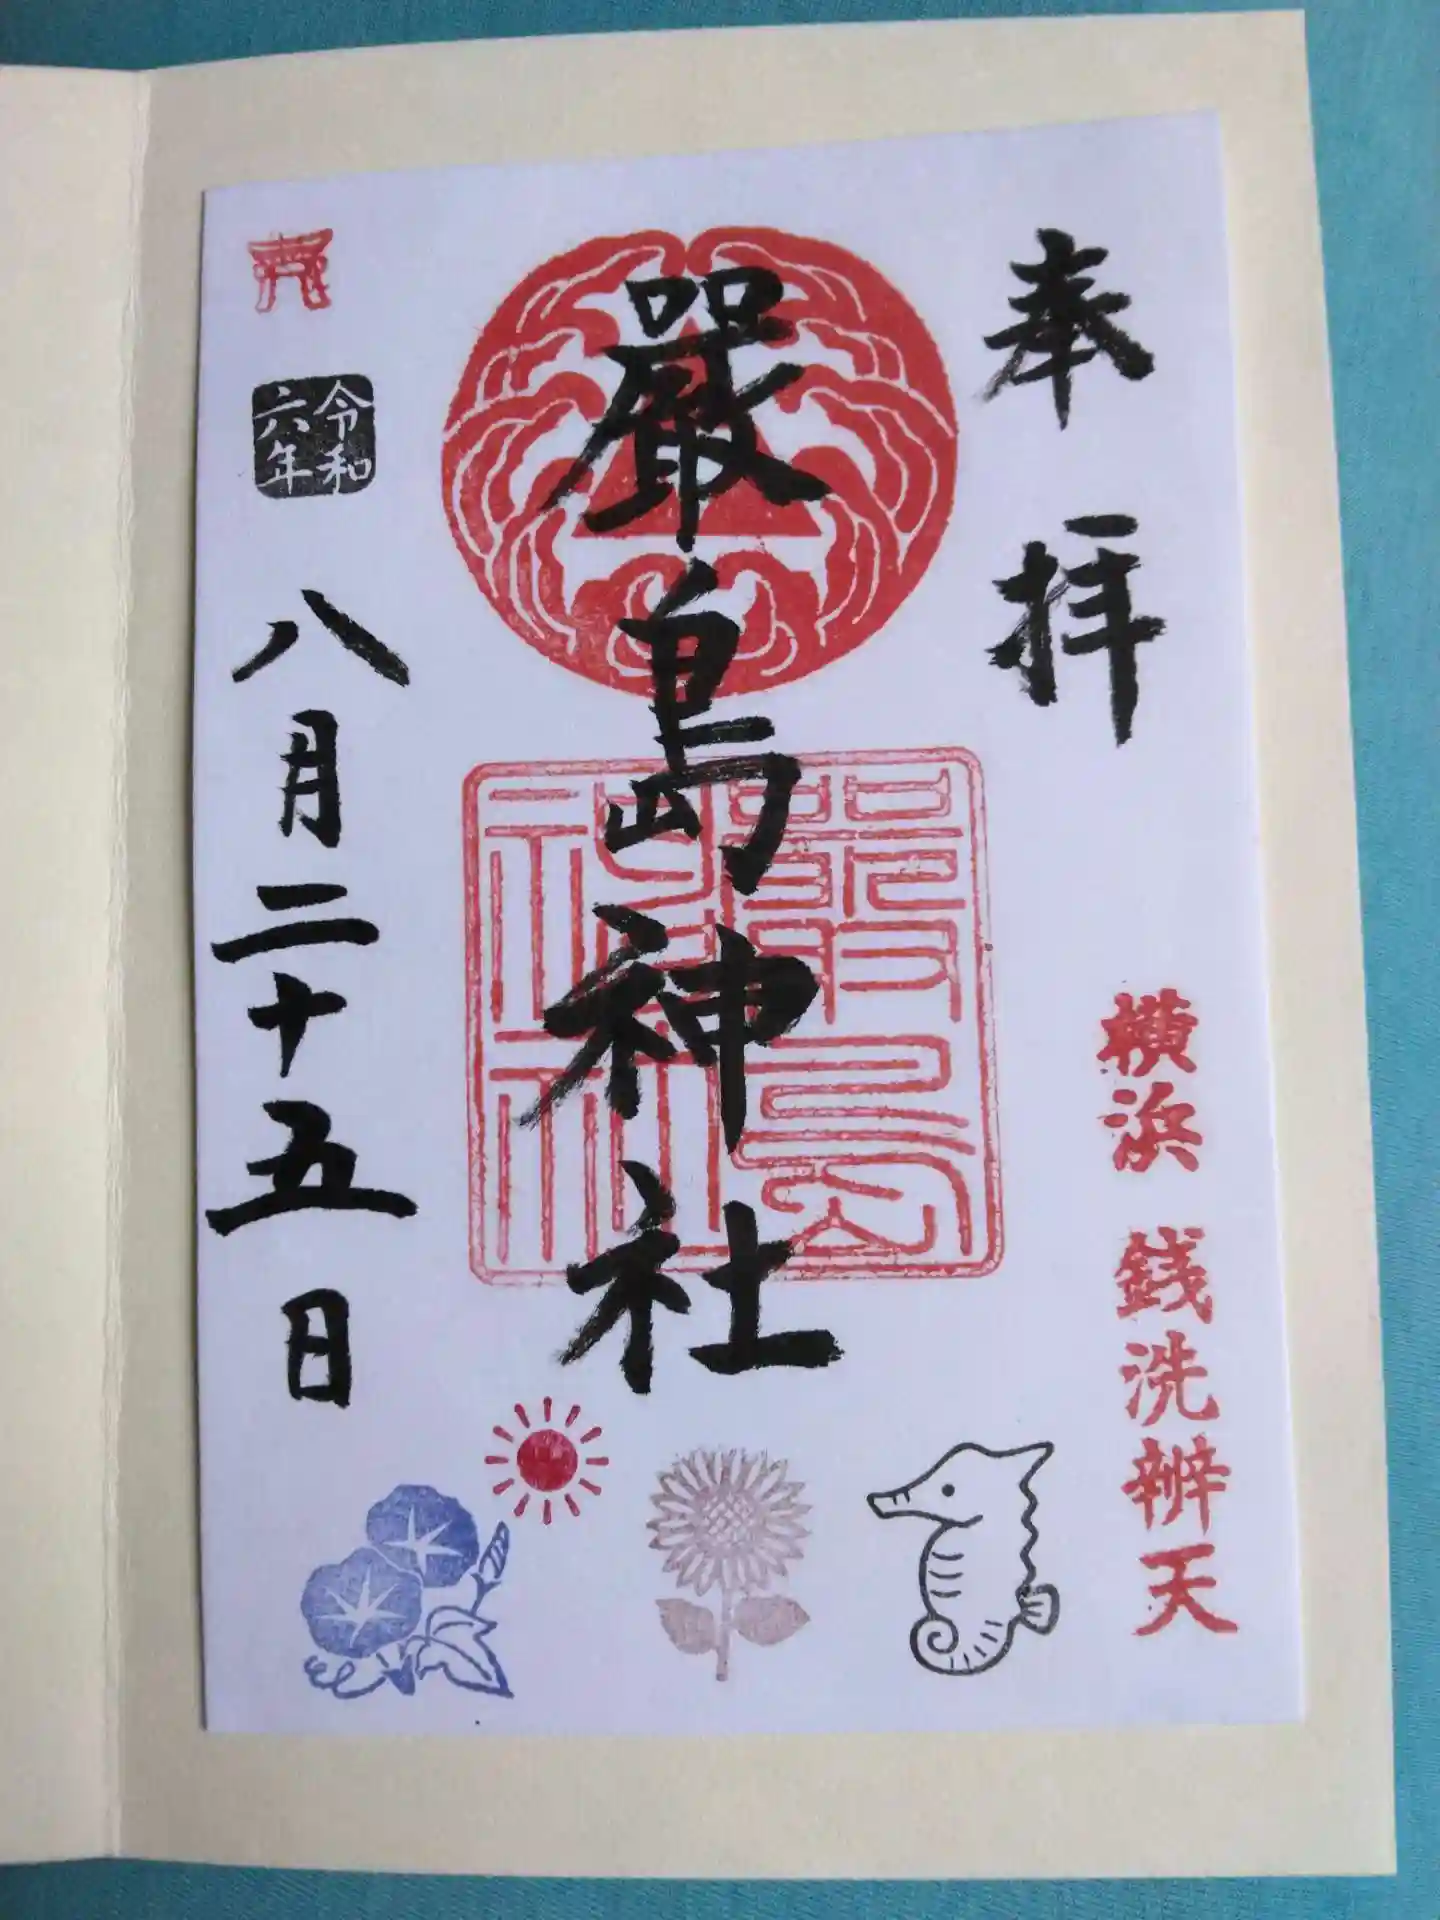 奉拝
横浜 銭洗辨天
嚴島神社
嚴島
神社
令和
六年
八月二十五日